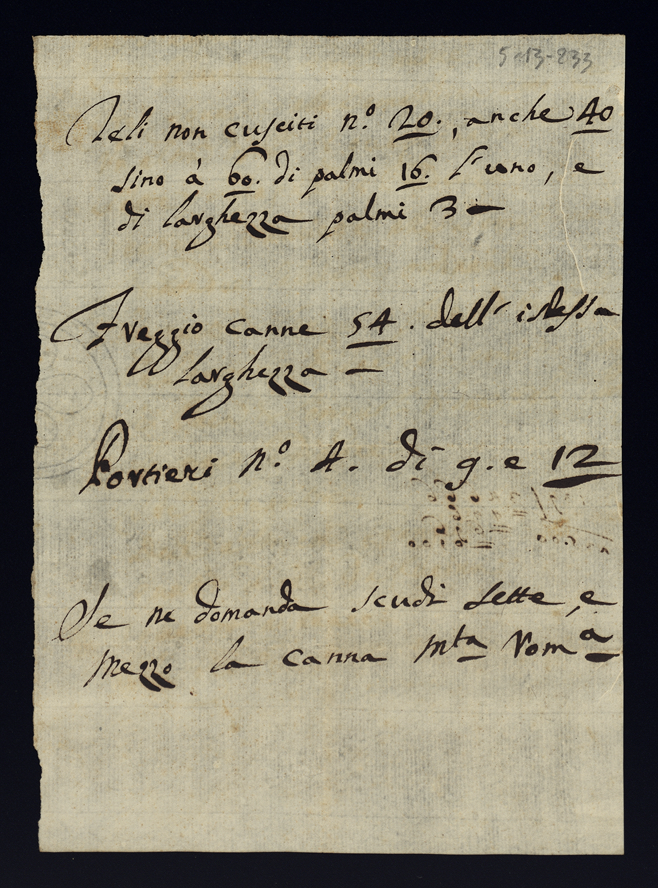 5-13-233
Teli non cusciti n.º 20., anche 40
sino à 60. di palmi 16. l'uno, e
di larghezza palmi 3 -
Freggio canne 54. dell'istessa
larghezza -
Portieri n.º 4. di 9. e 12
Se ne domanda scudi sette, e
mezzo la canna mta Romª